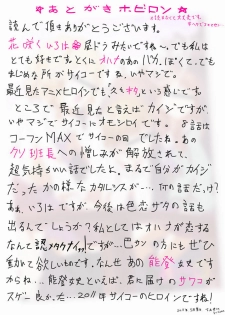 ☆あとがきホビロン☆
読んで頂きありがとうございます。
花咲くいろは 昼ドラみたいですね〜、でも私は
とても好きです。とくにオハナのあのバカ、ぽくて、でも
まじめな所がサイコーですね、いやマジで。
最近見たアニメヒロインでも、という感じです。
ところで最近見たと言えばカイジですが、
いやマジでサイコにオモシロイです。 8話は
コーフンMAXでサイコーの回でしたね。あの
クソ班長への憎しみが解放されて、
超気持ちいい話でしたよ、まるで自分がカイジ
だったかの様なカタルシスが…、何の話だっけ?
あぁ、いろはですが、今後は色恋ザタの話も
出るんでしょうか?私としてはオハナが恋する
なんて認メタクナイですが…巴サンの方にもぜひ
動いて欲しいものです、なんせあの能登女史です
からね…、能登女史といえば、君に届けのサワコが
スゲー良かった…2011年サイコーのヒロインですね!